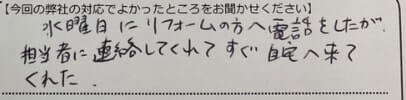 【今回の弊社の対応でよかったところをお聞かせください】
水曜日にリフォームの方へ電話をしたが、
担当者に連絡してくれてすぐ自宅へ来て
くれた.